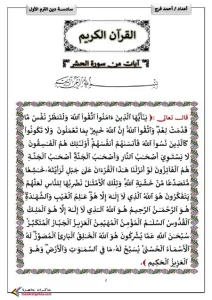 أعداد / أحمد فرج
سادسة دين الترم الأول
القرآن الكريم
آيات من سورة الحشر
بسم الله الرحمن الرحيم
قال تعالى: ﴿ يَٰٓأَيُّهَا ٱلَّذِينَ ءَامَنُوا۟ ٱتَّقُوا۟ ٱللَّهَ وَلْتَنظُرْ نَفْسٌ مَّا
قَدَّمَتْ لِغَدٍ وَٱتَّقُوا۟ ٱللَّهَ إِنَّ ٱللَّهَ خَبِيرٌۢ بِمَا تَعْمَلُونَ وَلَا تَكُونُوا۟
كَٱلَّذِينَ نَسُوا۟ ٱللَّهَ فَأَنسَىٰهُمْ أَنفُسَهُمْ أُو۟لَٰٓئِكَ هُمُ ٱلْفَٰسِقُونَ
لَا يَسْتَوِىٓ أَصْحَٰبُ ٱلنَّارِ وَأَصْحَٰبُ ٱلْجَنَّةِ أَصْحَٰبُ ٱلْجَنَّةِ
هُمُ ٱلْفَآئِزُونَ لَوْ أَنزَلْنَا هَٰذَا ٱلْقُرْءَانَ عَلَىٰ جَبَلٍ لَّرَأَيْتَهُۥ خَٰشِعًا
مُّتَصَدِّعًا مِّنْ خَشْيَةِ ٱللَّهِ وَتِلْكَ ٱلْأَمْثَٰلُ نَضْرِبُهَا لِلنَّاسِ لَعَلَّهُمْ
يَتَفَكَّرُونَ هُوَ ٱللَّهُ ٱلَّذِى لَآ إِلَٰهَ إِلَّا هُوَ عَٰلِمُ ٱلْغَيْبِ وَٱلشَّهَٰدَةِ
هُوَ ٱلرَّحْمَٰنُ ٱلرَّحِيمُ هُوَ ٱللَّهُ ٱلَّذِى لَآ إِلَٰهَ إِلَّا هُوَ ٱلْمَلِكُ
ٱلْقُدُّوسُ ٱلسَّلَٰمُ ٱلْمُؤْمِنُ ٱلْمُهَيْمِنُ ٱلْعَزِيزُ ٱلْجَبَّارُ ٱلْمُتَكَبِّرُ
سُبْحَٰنَ ٱللَّهِ عَمَّا يُشْرِكُونَ هُوَ ٱللَّهُ ٱلْخَٰلِقُ ٱلْبَارِئُ ٱلْمُصَوِّرُ لَهُ
ٱلْأَسْمَآءُ ٱلْحُسْنَىٰ يُسَبِّحُ لَهُۥ مَا فِى ٱلسَّمَٰوَٰتِ وَٱلْأَرْضِ وَهُوَ
ٱلْعَزِيزُ ٱلْحَكِيمُ ﴾.
مذكرات جاهزة